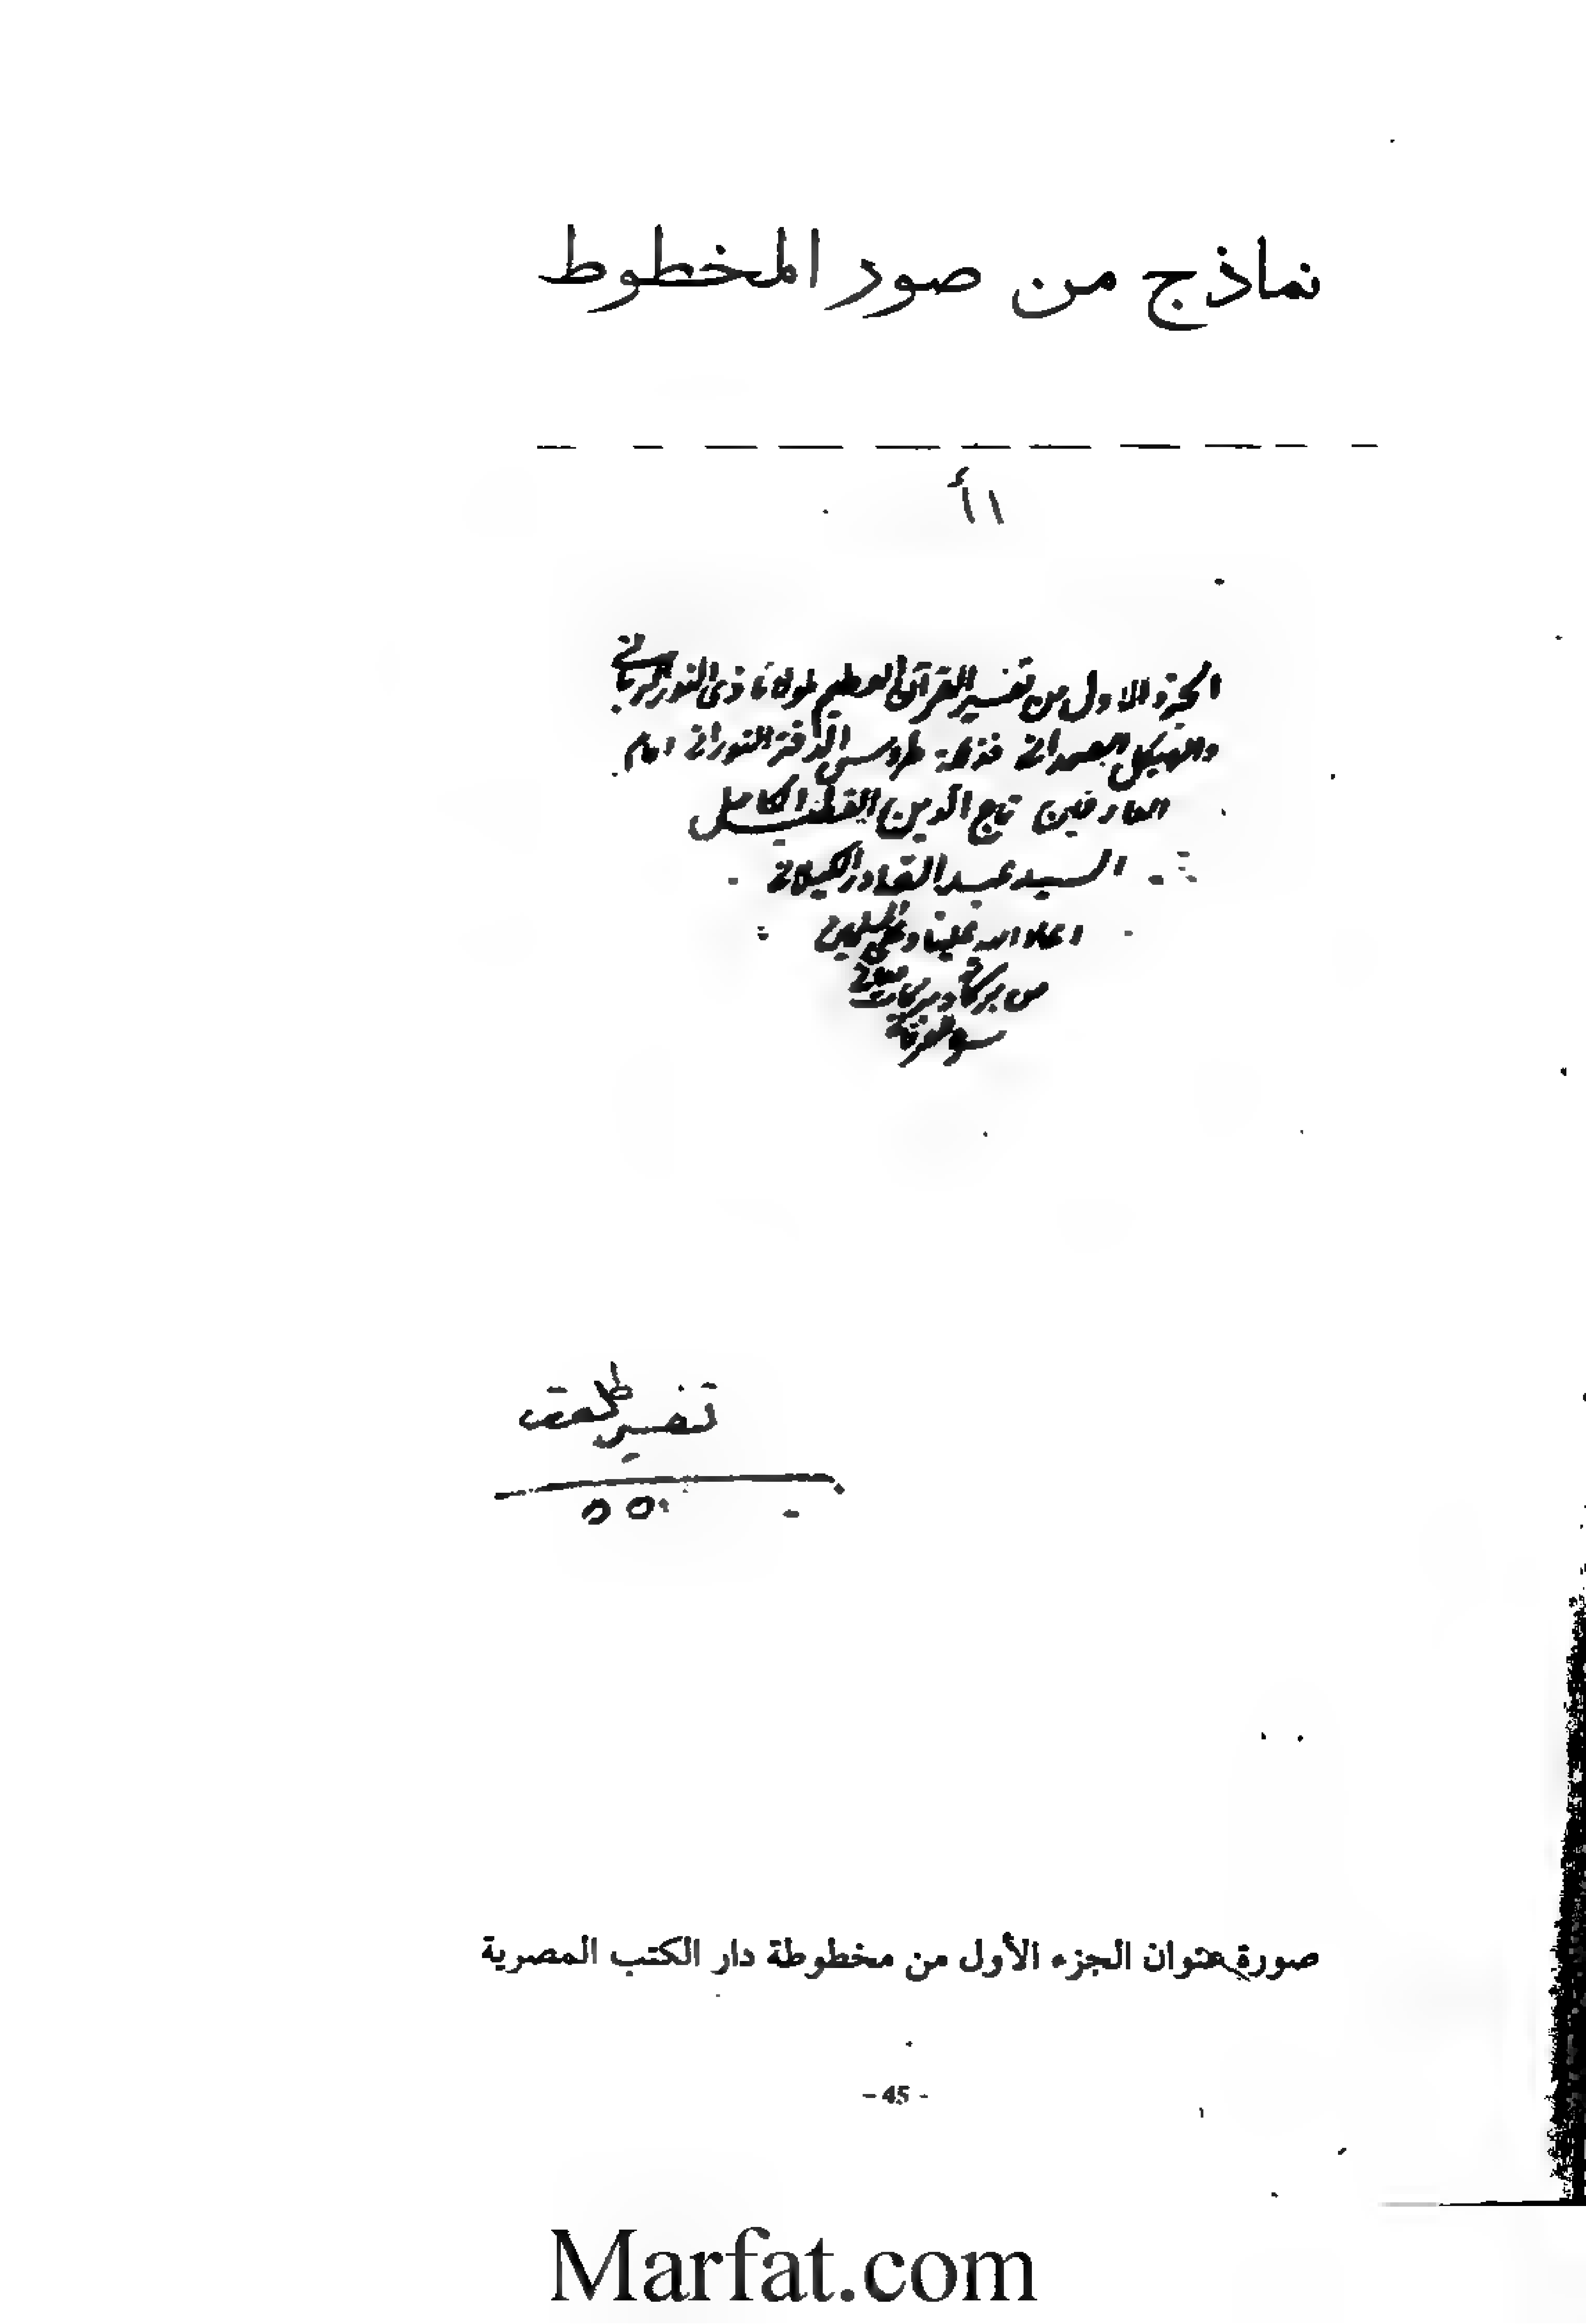 نماذج من صور المخطوط
١أ
الجزء الاول من تفسير القرآن العظيم لمولانا ذى النور الربانى
والهيكل الصمدانى الدفتر النورانى امام
العارفين تاج الدين القطب الكامل
السيد عبد القادر الكيلانى
اعاد الله علينا وعلى المسلمين
من بركاته وبركات
تفسير طلعت
٥٥
صورة عنوان الجزء الأول من مخطوطة دار الكتب المصرية
- 45 -
Marfat.com